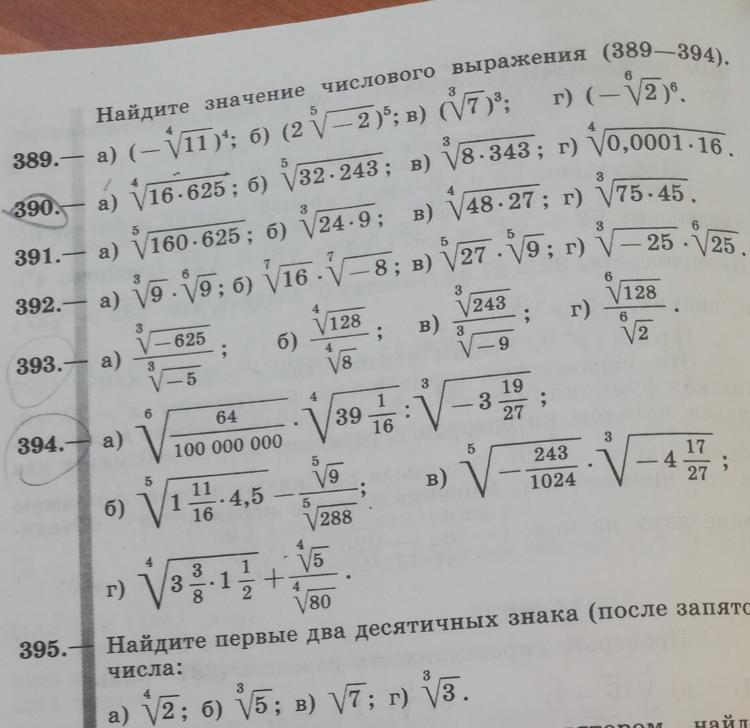 Найдите значение числового выражения (389—394).
389.— а) (−⁴√11)⁴; б) (2 ⁵√−2)⁵; в) (³√7)³; г) (−⁶√2)⁶.
390.— а) ⁴√(16·625); б) ⁵√(32·243); в) ³√(8·343); г) ⁴√(0,0001·16).
391.— а) ⁵√(160·625); б) ³√(24·9); в) ⁴√(48·27); г) ³√(75·45).
392.— а) ³√9 · ⁶√9; б) ⁷√16 · ⁷√−8; в) ⁵√27 · ⁵√9; г) ³√−25 · ⁶√25.
393.— а) ³√−625 / ³√−5; б) ⁴√128 / ⁴√8; в) ³√243 / ³√−9; г) ⁶√128 / ⁶√2.
394.— а) ⁶√(64/100 000 000) · ⁴√(39 1/16) : ³√(−3 19/27);
б) ⁵√(1 11/16 · 4,5) − ⁵√9 / ⁵√288; в) ⁵√(−243/1024) · ³√(−4 17/27);
г) ⁴√(3 3/8 · 1 1/2) + ⁴√5 / ⁴√80.
395.— Найдите первые два десятичных знака (после запято
числа:
а) ⁴√2; б) ³√5; в) √7; г) ³√3.